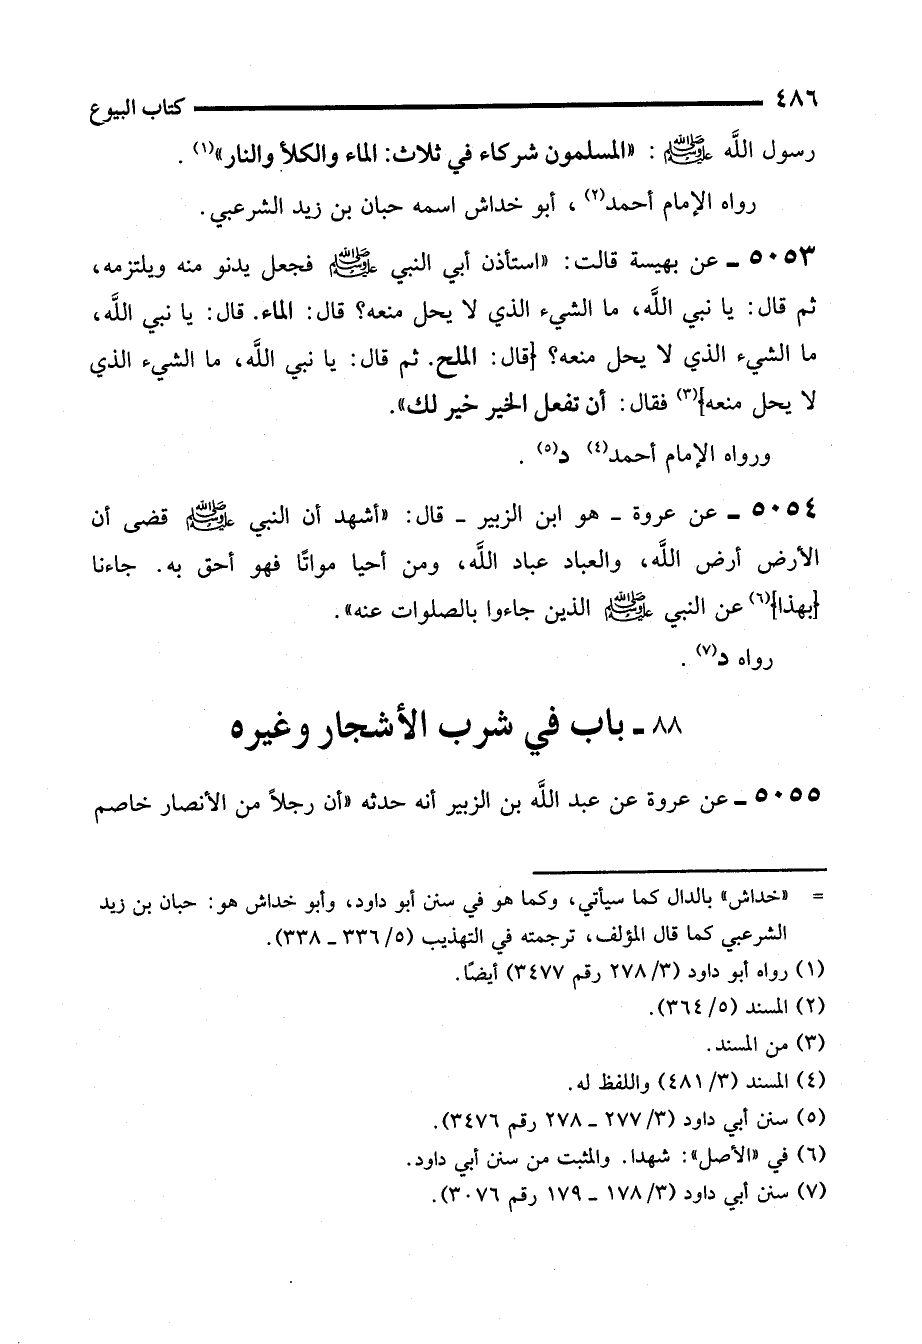 ٤٨٦ كتاب البيوع
رسول اللَّه ﷺ : «المسلمون شركاء في ثلاث: الماء والكلأ والنار»(١) .
رواه الإمام أحمد(٢) ، أبو خداش اسمه حبان بن زيد الشرعبي.
٥٠٥٣ ـ عن بهيسة قالت: «استأذن أبي النبي ﷺ فجعل يدنو منه ويلتزمه،
ثم قال: يا نبي اللَّه، ما الشيء الذي لا يحل منعه؟ قال: الماء. قال: يا نبي اللَّه،
ما الشيء الذي لا يحل منعه؟ {قال: الملح. ثم قال: يا نبي اللَّه، ما الشيء الذي
لا يحل منعه}(٣) فقال: أن تفعل الخير خير لك».
ورواه الإمام أحمد(٤) د(٥) .
٥٠٥٤ ـ عن عروة ـ هو ابن الزبير ـ قال: «أشهد أن النبي ﷺ قضى أن
الأرض أرض اللَّه، والعباد عباد اللَّه، ومن أحيا مواتًا فهو أحق به. جاءنا
{بهذا}(٦) عن النبي ﷺ الذين جاءوا بالصلوات عنه».
رواه د(٧) .
٨٨ ـ باب في شرب الأشجار وغيره
٥٠٥٥ ـ عن عروة عن عبد اللَّه بن الزبير أنه حدثه «أن رجلاً من الأنصار خاصم
= «خداش» بالدال كما سيأتي، وكما هو في سنن أبو داود، وأبو خداش هو: حبان بن زيد
الشرعبي كما قال المؤلف، ترجمته في التهذيب (٥/ ٣٣٦ ـ ٣٣٨).
(١) رواه أبو داود (٣/ ٢٧٨ رقم ٣٤٧٧) أيضًا.
(٢) المسند (٥/ ٣٦٤).
(٣) من المسند.
(٤) المسند (٣/ ٤٨١) واللفظ له.
(٥) سنن أبي داود (٣/ ٢٧٧ ـ ٢٧٨ رقم ٣٤٧٦).
(٦) في «الأصل»: شهدا. والمثبت من سنن أبي داود.
(٧) سنن أبي داود (٣/ ١٧٨ ـ ١٧٩ رقم ٣٠٧٦).